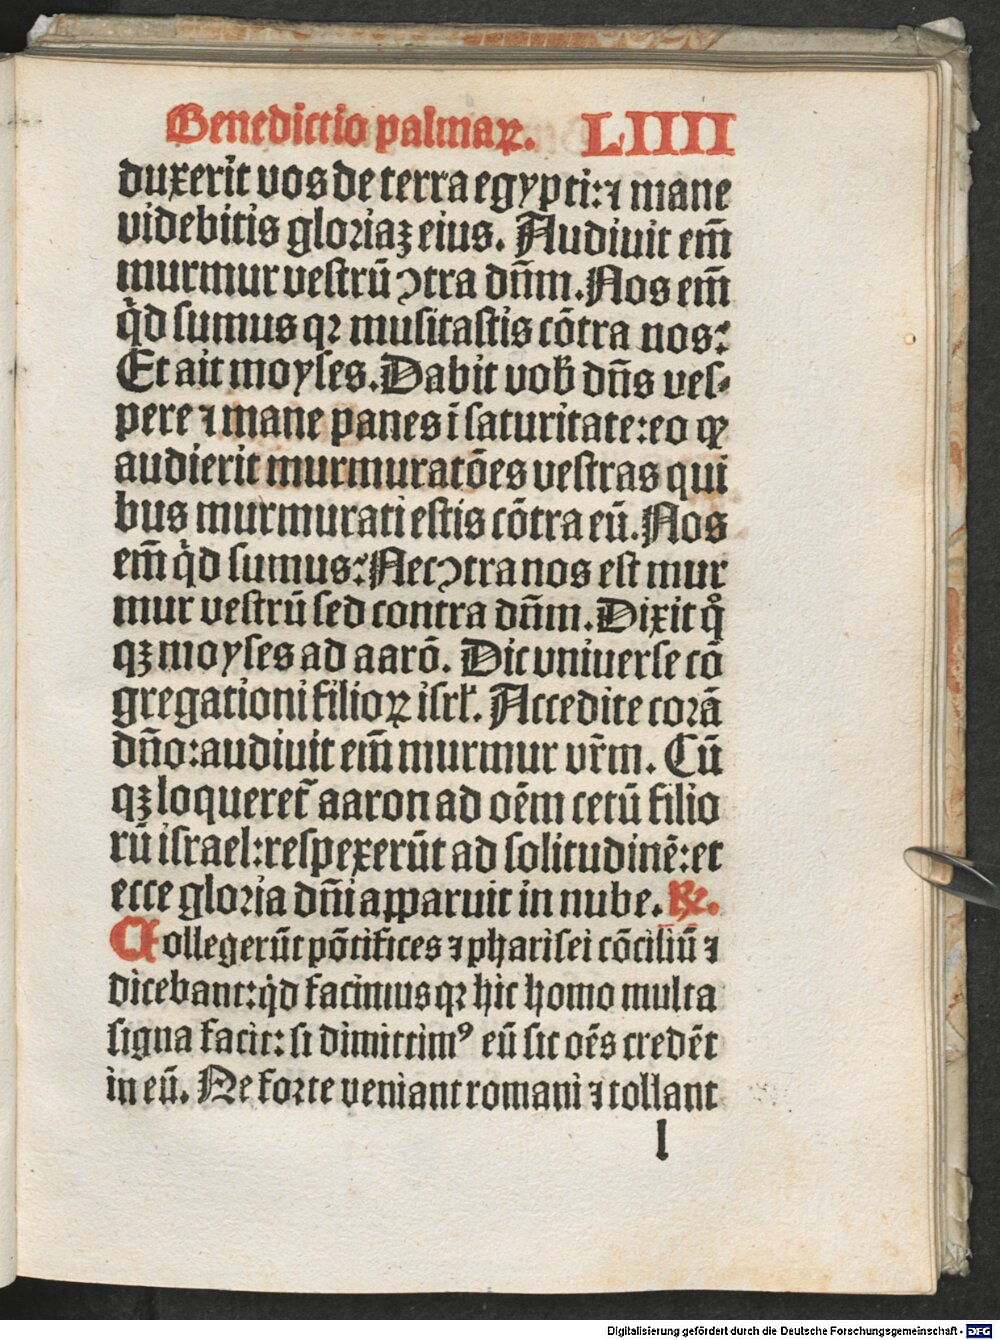 Benedictio palmaꝝ. LIIII
duxerit vos de terra egypti: ⁊ mane
videbitis gloriaꝫ eius. Audiuit em̄
murmur vestrū ꝯtra dn̄m. Nos em̄
qͥd sumus qꝛ musitastis cōtra nos:
Et ait moyses. Dabit vob̄ dn̄s ves⸗
pere ⁊ mane panes ī saturitate: eo ꝙ
audierit murmuratōes vestras qui
bus murmurati estis cōtra eū. Nos
em̄ qͥd sumus: Nec ꝯtra nos est mur
mur vestrū sed contra dn̄m. Dixit qͦ
qꝫ moyses ad aarō. Dic vniuerse cō
gregationi filioꝝ isrl̄. Accedite corā
dn̄o: audiuit em̄ murmur vr̄m. Cū
qꝫ loqueret᷑ aaron ad oēm cetū filio
rū israel: respexerūt ad solitudinē: et
ecce gloria dn̄i apparuit in nube. ℟.
Collegerūt pōtifices ⁊ pharisei cōciliū ⁊
dicebant: qͥd facimus qꝛ hic homo multa
signa facit: si dimittimꝰ eū sic oēs credēt
in eū. Ne forte veniant romani ⁊ tollant
l
Digitalisierung gefördert durch die Deutsche Forschungsgemeinschaft - DFG